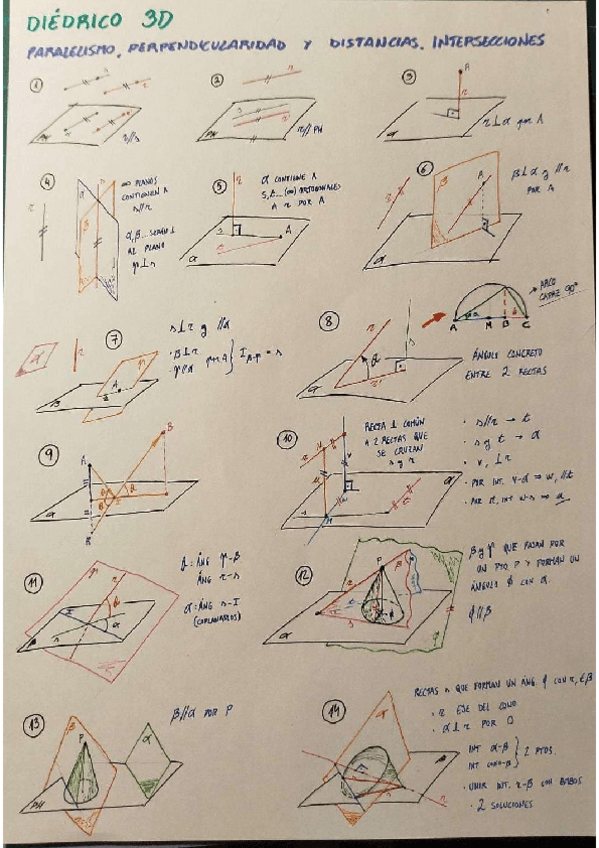 DIÉDRICO 3D
PARALELISMO, PERPENDICULARIDAD Y DISTANCIAS. INTERSECCIONES
1
r//s
2
PH
r//PH
3
A
r
α
r⊥α por A
4
∞ PLANOS
CONTIENEN A
s//r
α, β... SERÁN ⊥
AL PLANO
5
α CONTIENE A
ORTOGONALES
A r POR A
A
α
6
β⊥α y //r
POR A
A
α
7
s⊥r y //α
β⊥r
por A
A
8
ARCO
CAPAZ 90°
A
M
B
C
ÁNGULO CONCRETO
ENTRE 2 RECTAS
9
A
B
10
RECTA ⊥ COMÚN
A 2 RECTAS QUE
SE CRUZAN
s y r
s//r → t
s y t → α
v, ⊥r
POR INT. v-α ⇒ w, //t
11
ÁNG r-s
ÁNG s-I
(COPLANARIOS)
12
P
β y φ QUE PASAN POR
UN PTO P Y FORMAN UN
ÁNGULO φ CON α.
φ//β
13
β//α POR P
P
α
PH
14
RECTAS s QUE FORMAN UN ÁNG. φ CON r, ∈β
r EJE DEL CONO
α⊥r POR
INT α-β
INT CONO-β
2 PTOS.
UNIR INT. r-β CON AMBOS
2 SOLUCIONES